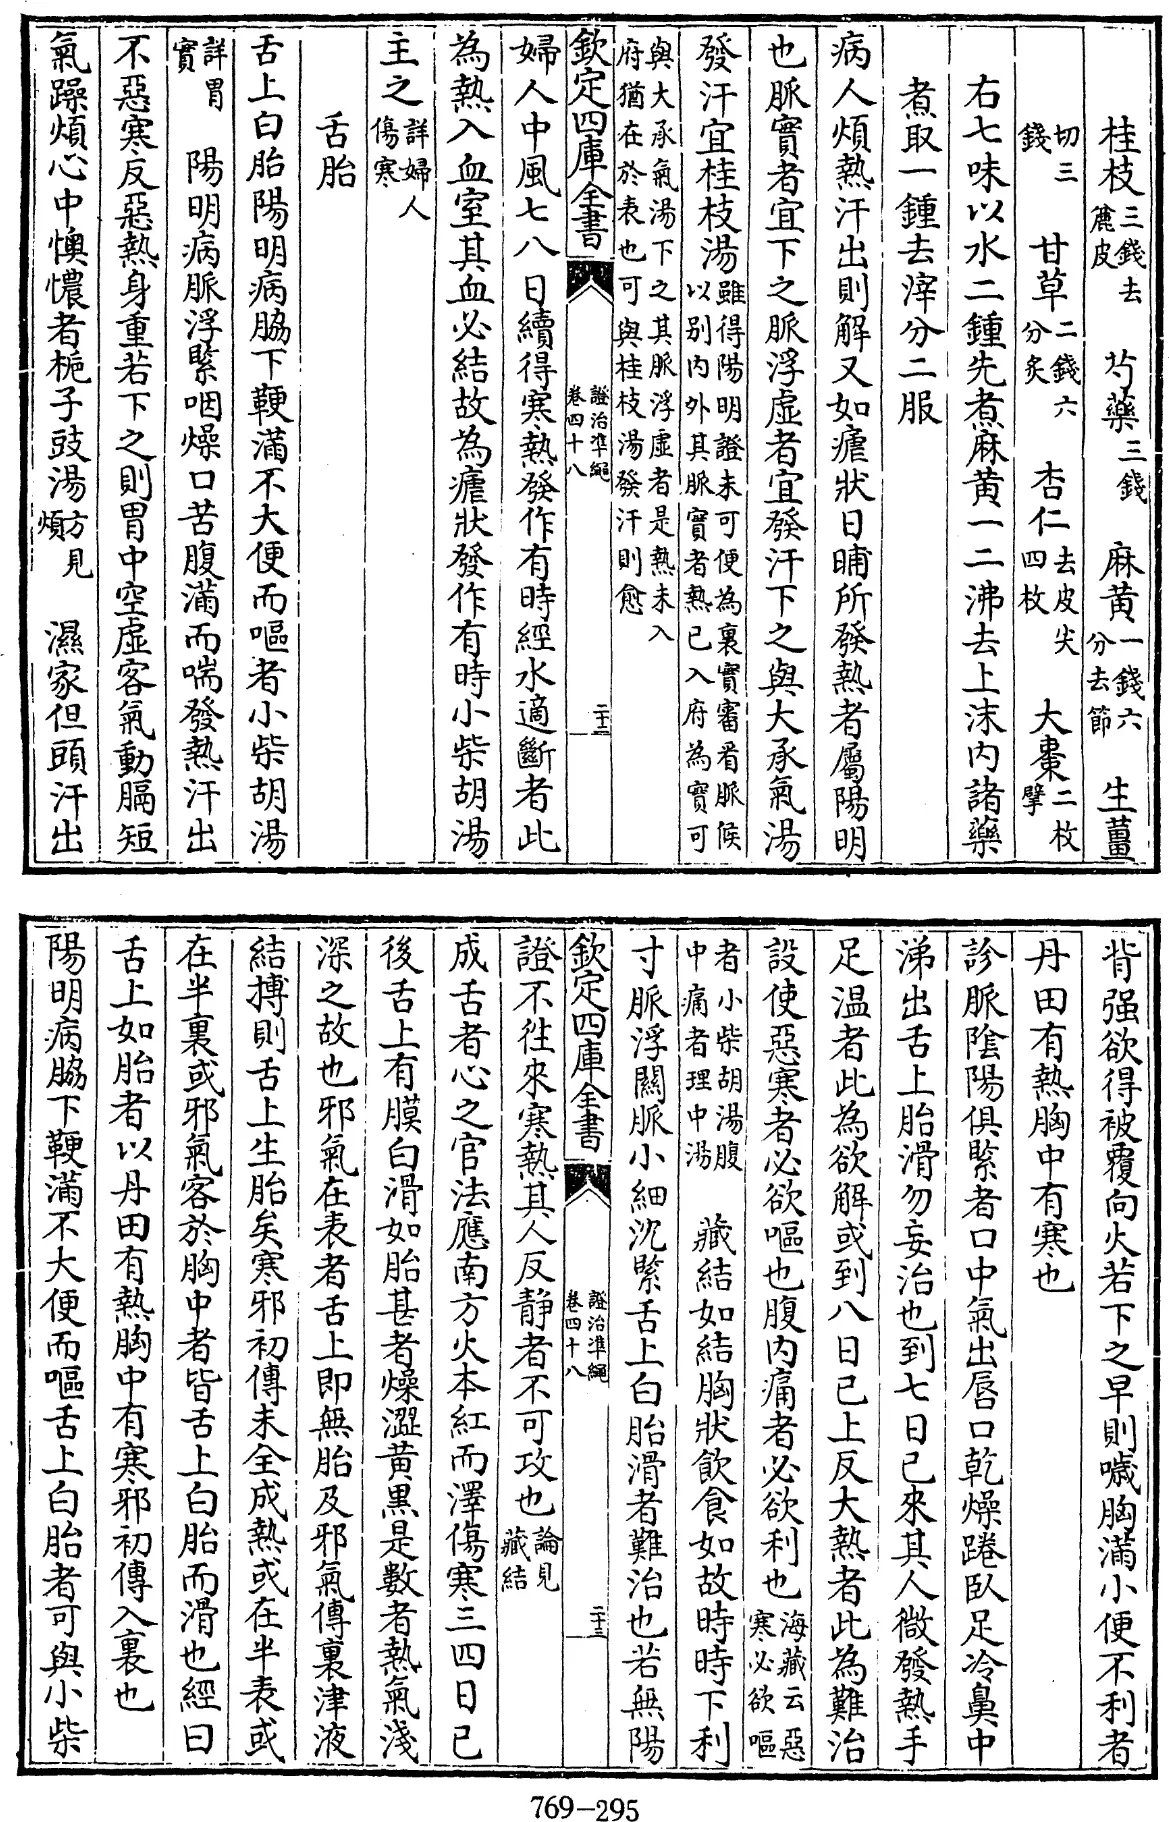 桂枝三錢去麄皮　芍藥三錢　麻黄一錢六分去節　生薑
切三錢　甘草二錢六分炙　杏仁去皮尖四枚　大棗二枚擘
右七味以水二鍾先煮麻黄一二沸去上沫内諸藥
煮取一鍾去滓分二服
病人煩熱汗出則解又如瘧狀日晡所發熱者屬陽明
也脈實者宜下之脈浮虛者宜發汗下之與大承氣湯
發汗宜桂枝湯雖得陽明證未可便為裏實審看脈候以别内外其脈實者熱已入府為實可
與大承氣湯下之其脈浮虛者是熱未入府猶在於表也可與桂枝湯發汗則愈
欽定四庫全書　證治準繩卷四十八　二十二
婦人中風七八日續得寒熱發作有時經水適斷者此
為熱入血室其血必結故為瘧狀發作有時小柴胡湯
主之詳婦人傷寒
舌胎
舌上白胎陽明病脇下鞕滿不大便而嘔者小柴胡湯
詳胃實　陽明病脈浮緊咽燥口苦腹滿而喘發熱汗出
不惡寒反惡熱身重若下之則胃中空虛客氣動膈短
氣躁煩心中懊憹者梔子豉湯方見煩　濕家但頭汗出
背强欲得被覆向火若下之早則噦胸滿小便不利者
丹田有熱胸中有寒也
診脈陰陽俱緊者口中氣出唇口乾燥踡臥足冷鼻中
涕出舌上胎滑勿妄治也到七日已來其人微發熱手
足温者此為欲解或到八日已上反大熱者此為難治
設使惡寒者必欲嘔也腹内痛者必欲利也海藏云惡寒必欲嘔
者小柴胡湯腹中痛者理中湯　藏結如結胸狀飲食如故時時下利
寸脈浮關脈小細沈緊舌上白胎滑者難治也若無陽
欽定四庫全書　證治準繩卷四十八　二十三
證不往來寒熱其人反靜者不可攻也論見藏結
成舌者心之官法應南方火本紅而澤傷寒三四日已
後舌上有膜白滑如胎甚者燥澀黄黒是數者熱氣淺
深之故也邪氣在表者舌上即無胎及邪氣傳裏津液
結搏則舌上生胎矣寒邪初傳未全成熱或在半表或
在半裏或邪氣客於胸中者皆舌上白胎而滑也經曰
舌上如胎者以丹田有熱胸中有寒邪初傳入裏也
陽明病脇下鞕滿不大便而嘔舌上白胎者可與小柴
769-295